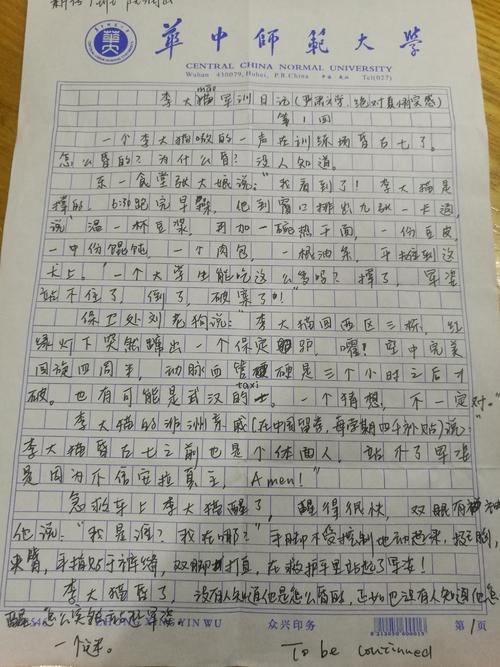 華中師範大學
CENTRAL CHINA NORMAL UNIVERSITY
Wuhan 430079, Hubei, P.R.China 中国 武汉 Tel(027)
李大猫军训日记(严肃文学,绝对真情实感)
第1回
一个李大猫嗷的一声在训练场昏古七了。
怎么昏的?为什么昏?没人知道。
东一食堂张大娘说:"我看到了!李大猫是
撑的。6:30跑完早操,他到窗口排出九张一卡通,
说"温一杯豆浆,再加一碗热干面,一份豆皮,
一中份馄饨,一个肉包,一根油条,
卡上。"一个大学生能吃这么多吗?撑了,军姿
站不住了,倒了,破案了!"
保卫处刘老狗说:"李大猫回西区三栋,红
绿灯下突然蹿出一个保定驴,嚯!空中完美
回旋四周半,动脉血管硬是三个小时之后才
taxi
破。也有可能是武汉的士。一个猜想,不一定对。"
李大猫的非洲亲戚(在中国留学,每学期四千补贴)说:
李大猫昏古七之前也是个体面人,站不了军姿
是因为不信安拉真主,Amen!"
急救车上李大猫醒了,醒得很快,双眼有神
他说:"我是谁?我在哪?"手脚不受控制地
夹臂,手指贴于裤缝,双脚并打直,在救护车里站起了军姿。
李大猫昏了,没有人知道他是怎么昏的,正如也没有人知道他怎
醒,怎么突然
众兴印务
第1页
To be continued